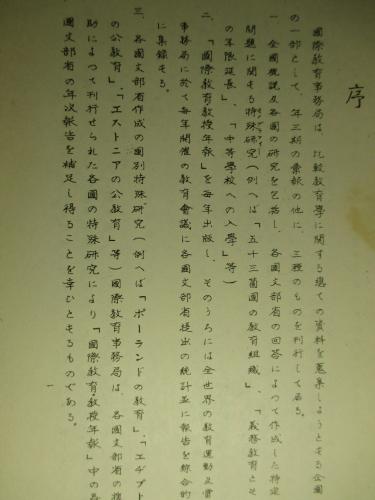 序
國際教育事務局は、比較教育學に關する總ての資料を蒐集しようとする企圖
の一部として、年三期の彙報の他に、三種のものを刊行して居る。
一、全國概説及各國の研究を包括し、各國文部省の回答によつて作成した特定
問題に關する特殊研究（例へば「五十三箇國の教育組織」、「義務教育とそ
の年限延長」、「中等學校への入學」等）
二、「國際教育教授年報」を毎年出版し、そのうちには全世界の教育運動及
事務局に於て毎年開催の教育會議に各國文部省提出の統計並に報告を綜合的
に集録する。
三、各國文部省作成の國別特殊研究（例へば「ポーランドの教育」、「エヂプト
の公教育」、「エストニアの公教育」等）國際教育事務局は、各國文部省の
助によつて刊行せられた各國の特殊研究により「國際教育教授年報」中の各
國文部省の年次報告を補足し得ることを幸ひとするものである。
一